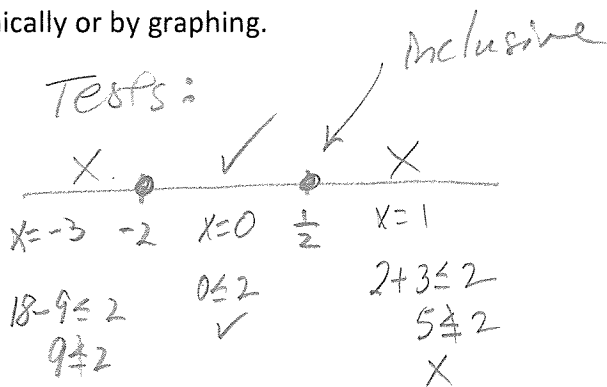 ically or by graphing.
inclusive
Tests:
X ✓ X
x=-3 -2 x=0 1/2 x=1
18-9≤2 0≤2 2+3≤2
9≰2 ✓ 5≰2
X